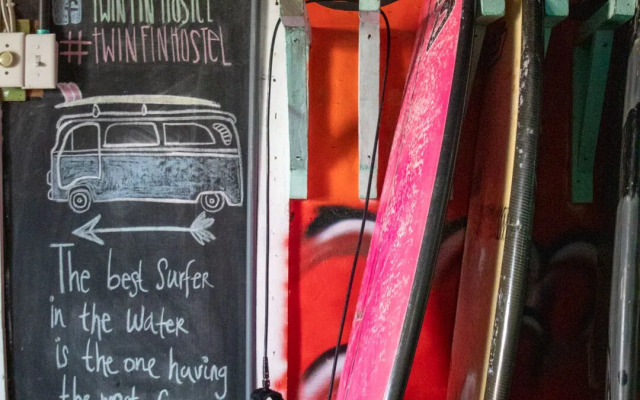 TWIN FIN HOSTEL
#TWINFINHOSTEL
The best Surfer
in the water
is the one having
the most